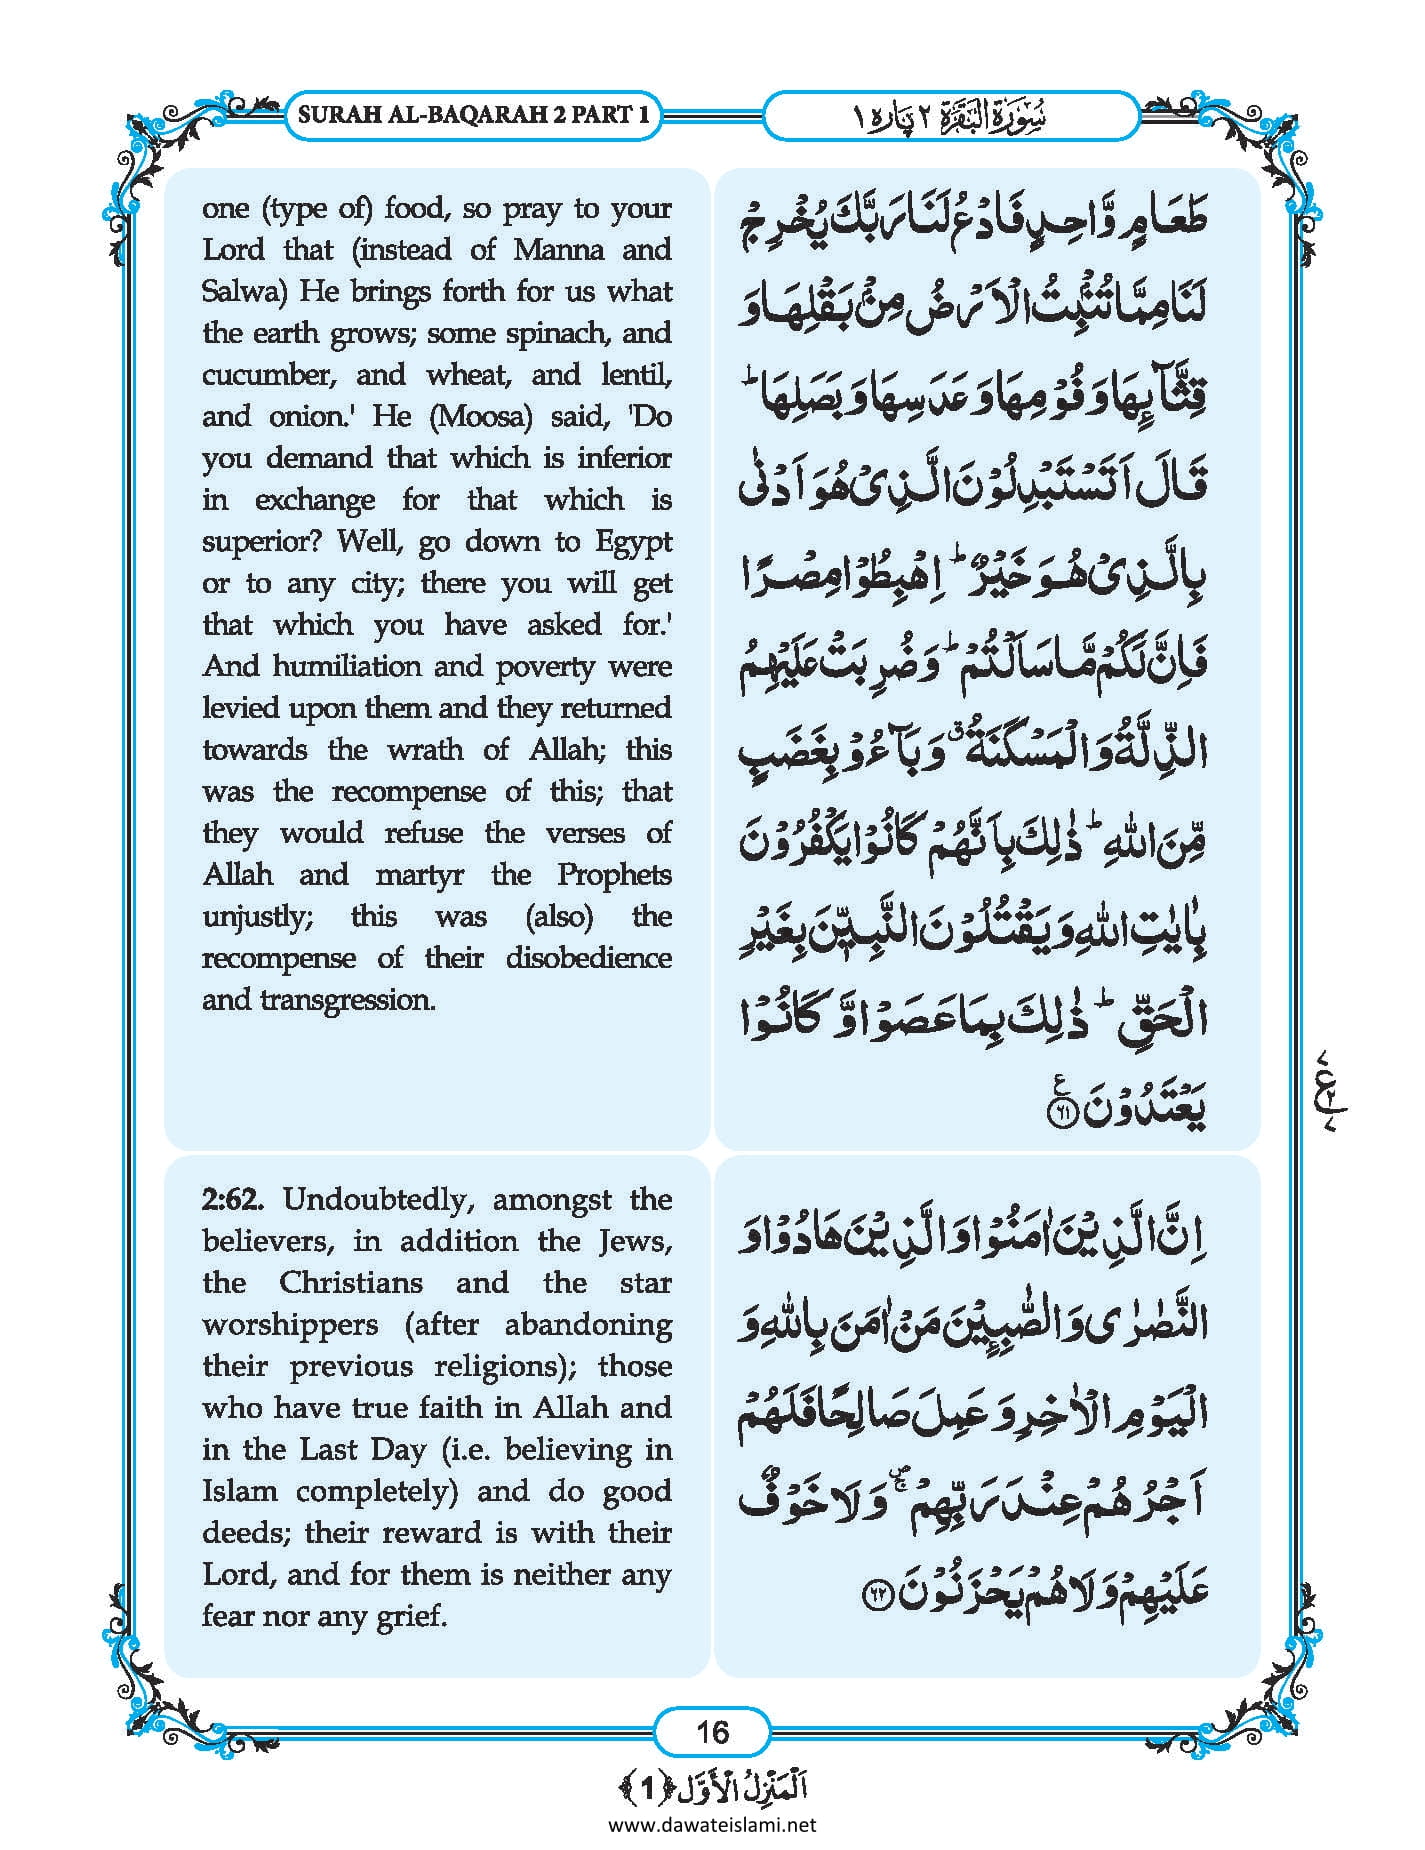 SURAH AL-BAQARAH 2 PART 1
سُوْرَةُ الْبَقَرَة ٢ پارہ ١
one (type of) food, so pray to your
Lord that (instead of Manna and
Salwa) He brings forth for us what
the earth grows; some spinach, and
cucumber, and wheat, and lentil,
and onion.' He (Moosa) said, 'Do
you demand that which is inferior
in exchange for that which is
superior? Well, go down to Egypt
or to any city; there you will get
that which you have asked for.'
And humiliation and poverty were
levied upon them and they returned
towards the wrath of Allah; this
was the recompense of this; that
they would refuse the verses of
Allah and martyr the Prophets
unjustly; this was (also) the
recompense of their disobedience
and transgression.
طَعَامٍ وَّاحِدٍ فَادْعُ لَنَا رَبَّكَ يُخْرِجْ
لَنَا مِمَّا تُنْۢبِتُ الْاَرْضُ مِنْۢ بَقْلِهَا وَ
قِثَّآىِٕهَا وَ فُوْمِهَا وَ عَدَسِهَا وَ بَصَلِهَاؕ
قَالَ اَتَسْتَبْدِلُوْنَ الَّذِیْ هُوَ اَدْنٰى
بِالَّذِیْ هُوَ خَیْرٌؕ اِهْبِطُوْا مِصْرًا
فَاِنَّ لَكُمْ مَّا سَاَلْتُمْؕ وَ ضُرِبَتْ عَلَیْهِمُ
الذِّلَّةُ وَ الْمَسْكَنَةُۗ وَ بَآءُوْ بِغَضَبٍ
مِّنَ اللّٰهِؕ ذٰلِكَ بِاَنَّهُمْ كَانُوْا یَكْفُرُوْنَ
بِاٰیٰتِ اللّٰهِ وَ یَقْتُلُوْنَ النَّبِیّٖنَ بِغَیْرِ
الْحَقِّؕ ذٰلِكَ بِمَا عَصَوْا وَّ كَانُوْا
یَعْتَدُوْنَ ع ٦١
2:62. Undoubtedly, amongst the
believers, in addition the Jews,
the Christians and the star
worshippers (after abandoning
their previous religions); those
who have true faith in Allah and
in the Last Day (i.e. believing in
Islam completely) and do good
deeds; their reward is with their
Lord, and for them is neither any
fear nor any grief.
اِنَّ الَّذِیْنَ اٰمَنُوْا وَ الَّذِیْنَ هَادُوْا وَ
النَّصٰرٰى وَ الصّٰبِـِٕیْنَ مَنْ اٰمَنَ بِاللّٰهِ وَ
الْیَوْمِ الْاٰخِرِ وَ عَمِلَ صَالِحًا فَلَهُمْ
اَجْرُهُمْ عِنْدَ رَبِّهِمْۚۖ وَ لَا خَوْفٌ
عَلَیْهِمْ وَ لَا هُمْ یَحْزَنُوْنَ ٦٢
16
اَلْمَنْزِلُ الْاَوَّل ﴿1﴾
www.dawateislami.net